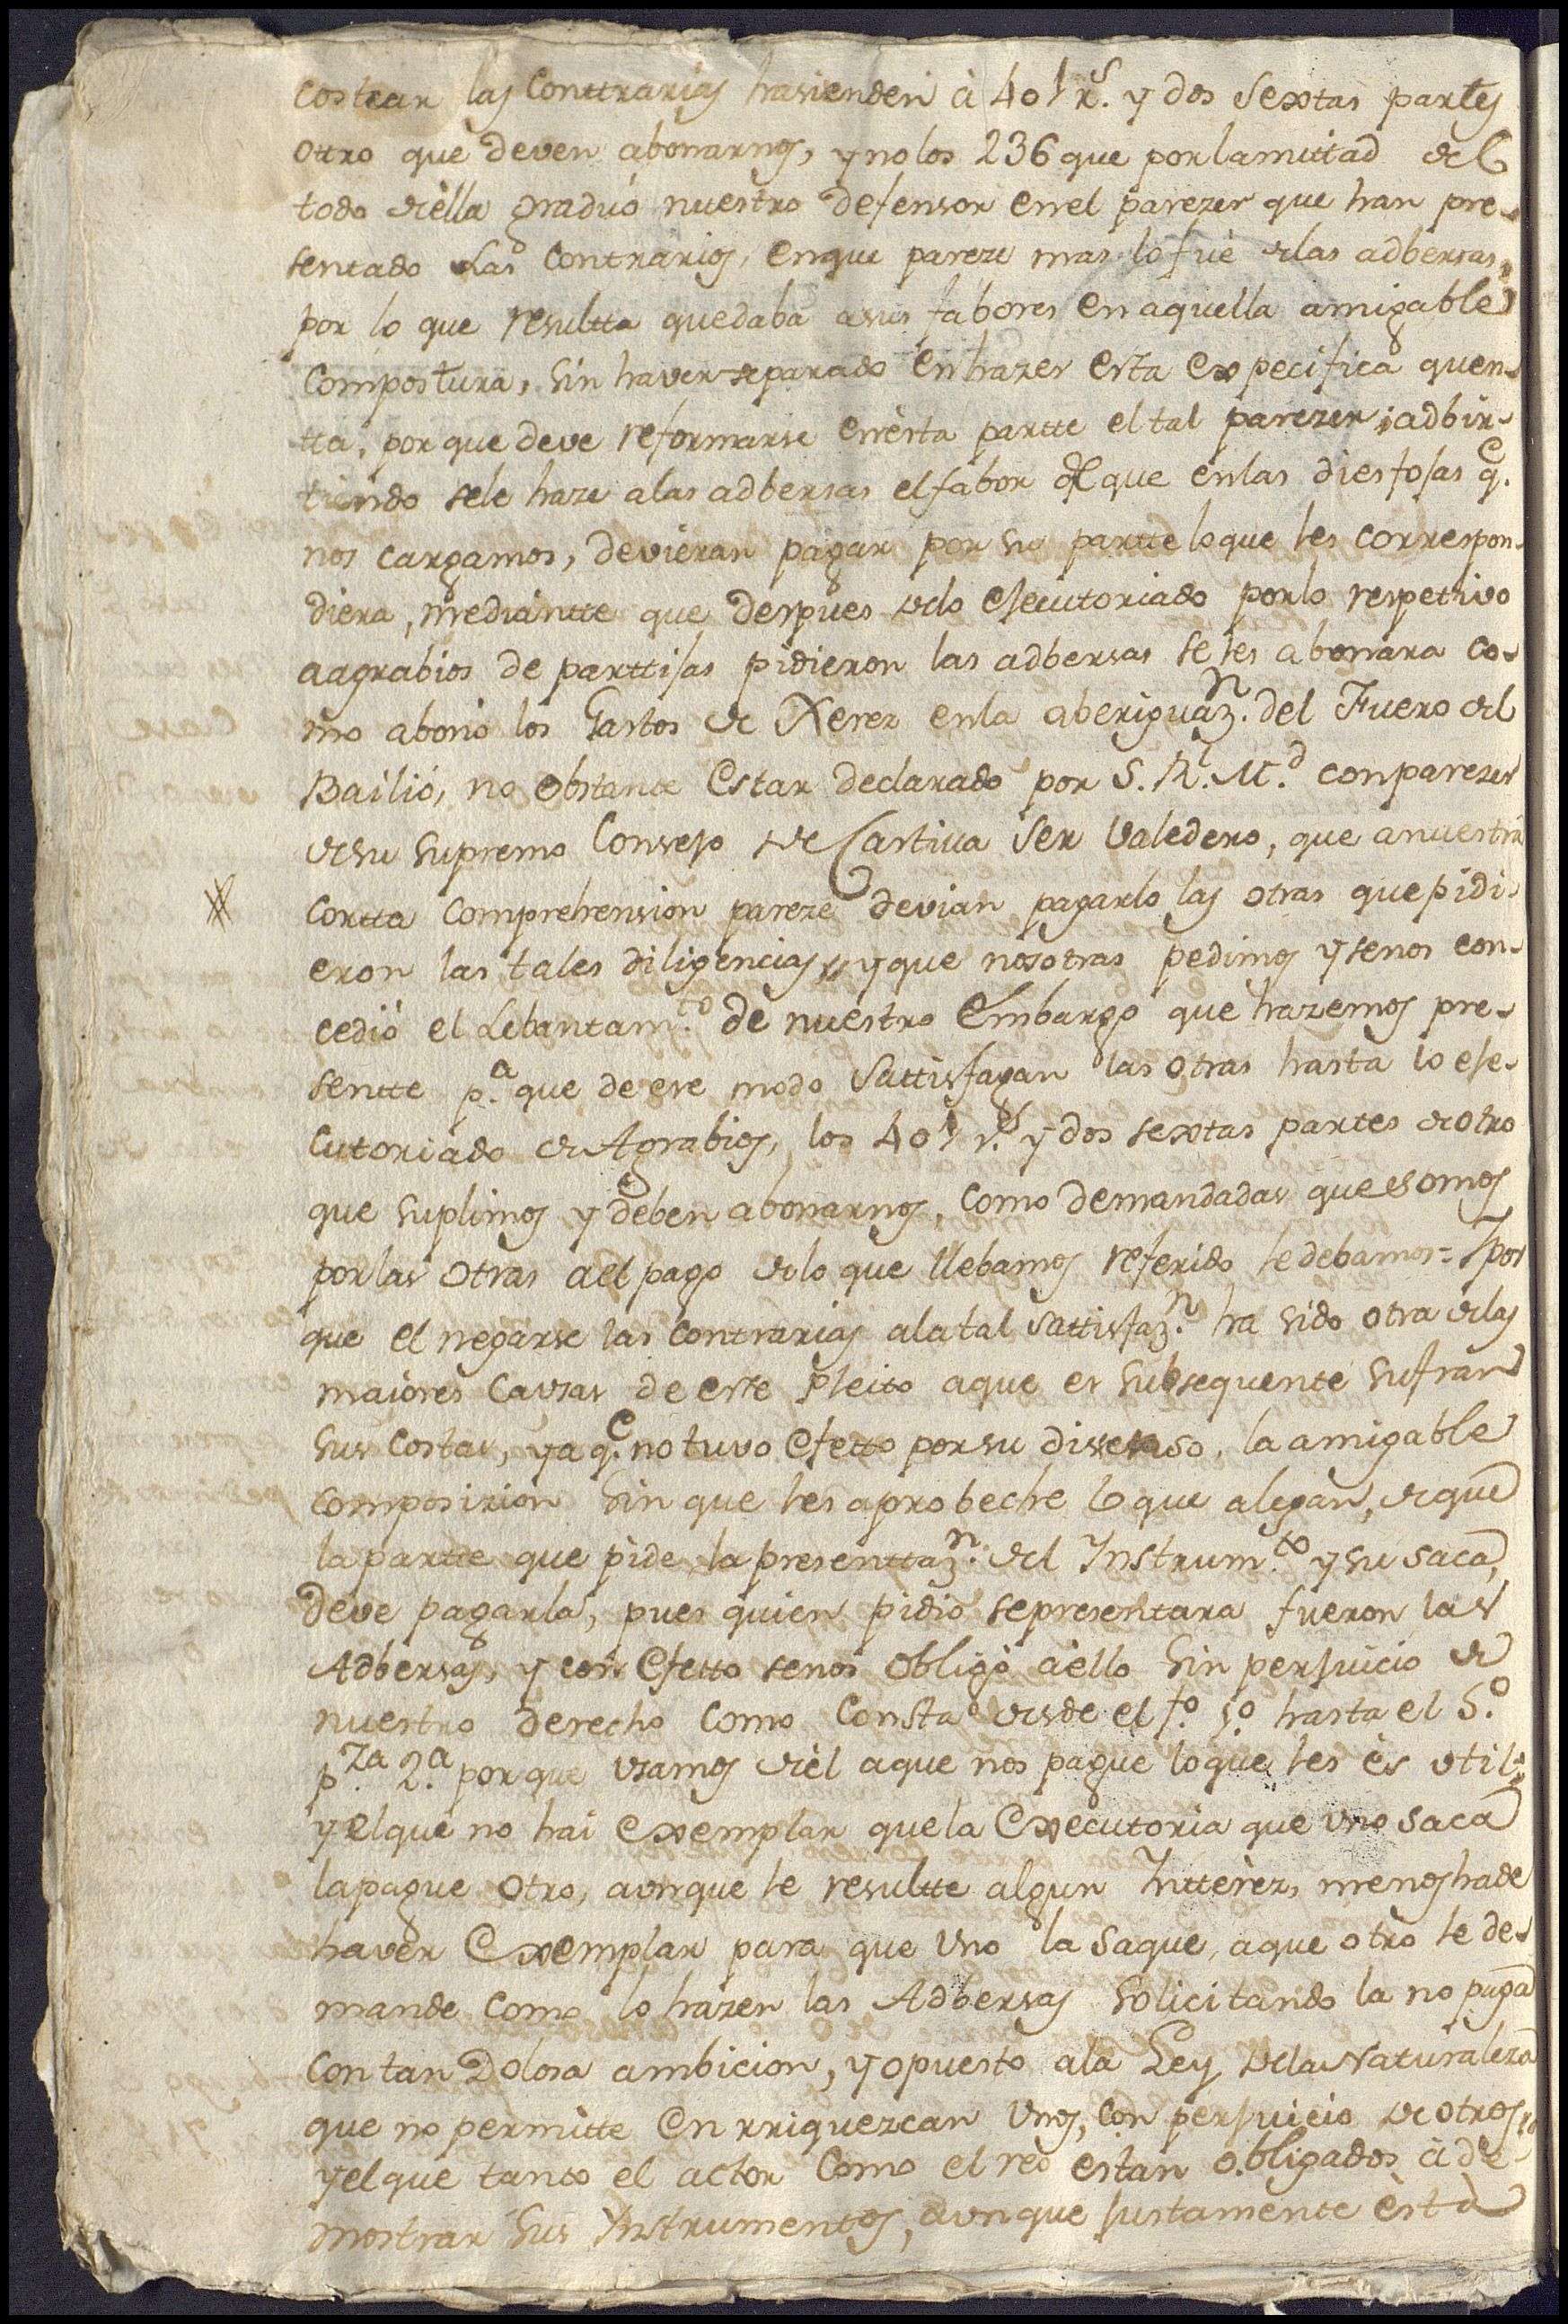 costear las Conttrarias hasienden à 401 r.s y dos Sextas partes
ottro que deven abonarnos, y no los 236 que por la mittad del
todo de ella graduó nuestro defensor en el parezer que han pre-
sentado Las Contrarios, en que pareze mas lo fue de las adbersas,
por lo que resultta quedaba a sus fabores en aquella amigable
Compostura, sin haver reparado en hazer esta expecifica quen-
tta, por que deve reformarse en èsta partte el tal parezer; adbir-
tiendo se le haze a las adbersas el fabor de que en las dies fojas q.e
nos cargamos, devieran pagar por su partte lo que les correspon-
diera, mediantte que despues de lo ejecutoriado por lo respetivo
a agrabios de parttijas pidieron las adbersas se les abonara co-
mo abonó los Gastos de Xerez en la aberiguaz.n del Fuero del
Bailio, no obstante Estar declarado por S. R.l M.d con parezer
de su supremo Consejo de Castilla Ser Valedero, que a nuestra
cortta Comprehension pareze devian pagarlo las otras que pidi-
eron las tales diligencias, y que nosotras pedimos y se nos con-
cedió el Lebantam.to de nuestro Embargo que hazemos pre-
sentte p.a que de ese modo Sattisfagan las otras hasta lo eje-
cutoriado de Agrabios, los 401 r.s y dos sextas partes de otro
que suplimos y deben abonarnos, Como demandadas que somos
por las otras a el pago de lo que llebamos referido le debamos = Ypor
que el negarse las contrarias a la tal sattisfaz.n ha sido otra de las
maiores Causas de este pleito a que es subsequente sufran
sus costas, ya q.e no tuvo Efetto por su disenso, la amigable
composizion Sin que les aprobeche lo que alegan, de que
la partte que pide la presenttaz.n del Instrum.to y su saca,
deve pagarla, pues quien pidió se presentara fueron las
Adbersas, y con Efetto se nos obligó a ello Sin perjuicio de
nuestro derecho Como Consta desde el f.o 1.o hasta el 5.o
p.za 2.a por que usamos de èl a que nos pague lo que les ès util;
y el que no hai Exemplar que la Executoria que uno saca
la pague otro, aunque le resultte algun Intterèz, menos ha de
haver Exemplar para que Uno la Saque, a que otro le de-
mande como lo hazen las Adbersas Solicitando la no paga
Con tan Dolosa ambicion, y opuesto a la Ley de la Naturaleza
que no permitte Enrriquezcan Unos, con perjuicio de otros,
y el que tanto el actor Como el reo estan obligados à de-
mostrar sus Ynstrumentos, aunque justamente èsta